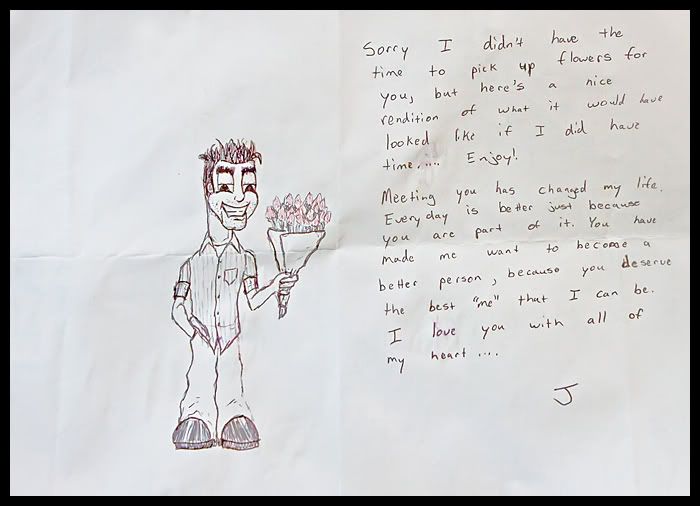 Sorry I didn't have the
time to pick up flowers for
you, but here's a nice
rendition of what it would have
looked like if I did have
time..... Enjoy!
Meeting you has changed my life.
Everyday is better just because
you are part of it. You have
made me want to become a
better person, because you deserve
the best "me" that I can be.
I love you with all of
my heart....
J